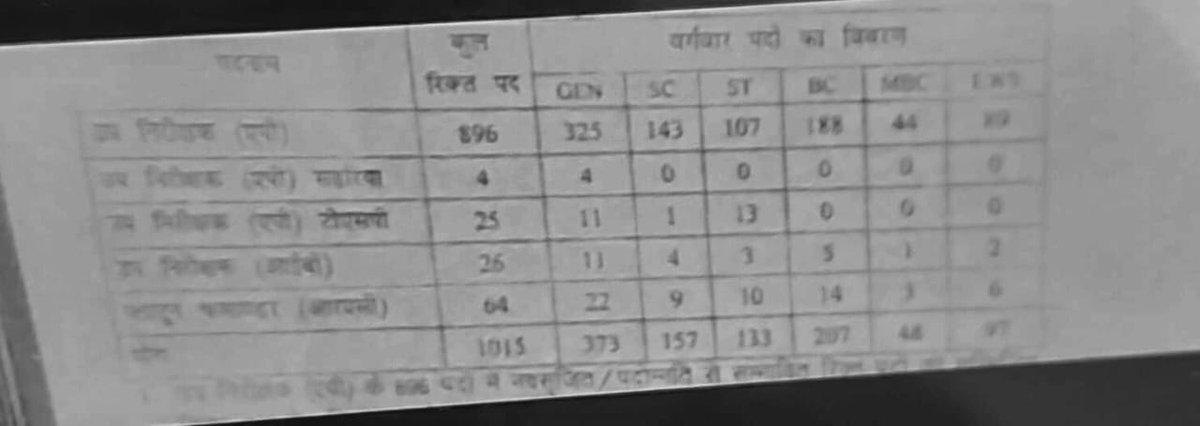 पदनाम कुल रिक्त पद वर्गवार पदों का विवरण
GEN SC ST BC MBC EWS
उप निरीक्षक (एपी) 896 325 143 107 188 44 89
उप निरीक्षक (एपी) सहरिया 4 4 0 0 0 0 0
उप निरीक्षक (एपी) टीएसपी 25 11 1 13 0 0 0
उप निरीक्षक (आईबी) 26 11 4 3 5 1 2
प्लाटून कमाण्डर (आरएसी) 64 22 9 10 14 3 6
योग 1015 373 157 133 207 48 97
1. उप निरीक्षक (एपी) के 896 पदों में नवसृजित/पदोन्नति से सम्भावित रिक्त पदों